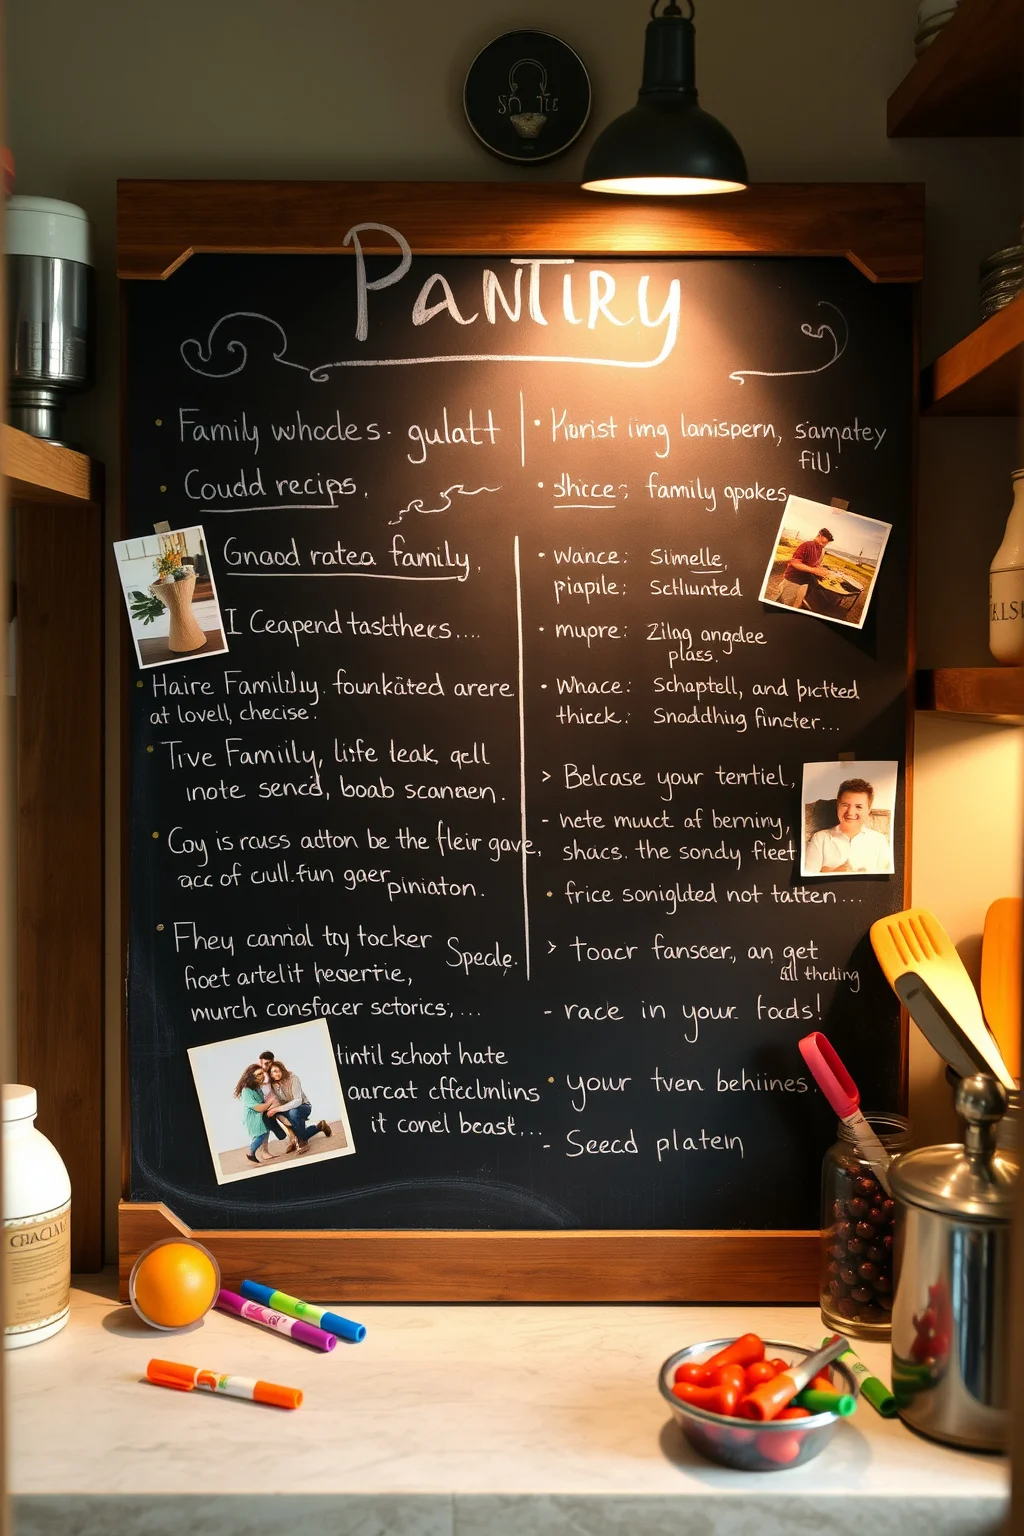 PANTIRY
Family whcdes. gulatt
Coudd recips.
Gnaod ratea family,
I Ceapend tastthers....
at lovell, checise.
Tive Family, life leak, qell
inote sencd, boab scannen.
Coy is rcuss adton be the fleir gave,
acc of cull.fun gaer piniaton.
Fhey cannial tty tocker
Specle.
murch consfacer sctorics;,...
tintil schoot hate
aarcat cffeclmlins
it conel beast,...
Kiorist img lanispern, samatey
fill.
shicce; family qpokes
Wance: Simelle,
piapile:
mupre: Zilng angdee
plass.
Whace: Schaptell, and
thicck: Snaddhing fincter...
> Belcase your tentiel,
- nete muuct af bemning,
shacs. the sondy fleet
frice sonigldted not tatten...
> Toacr fanseer, an get
all thciling
- race in your. foods!
your tven behiines.
- Seecd platein